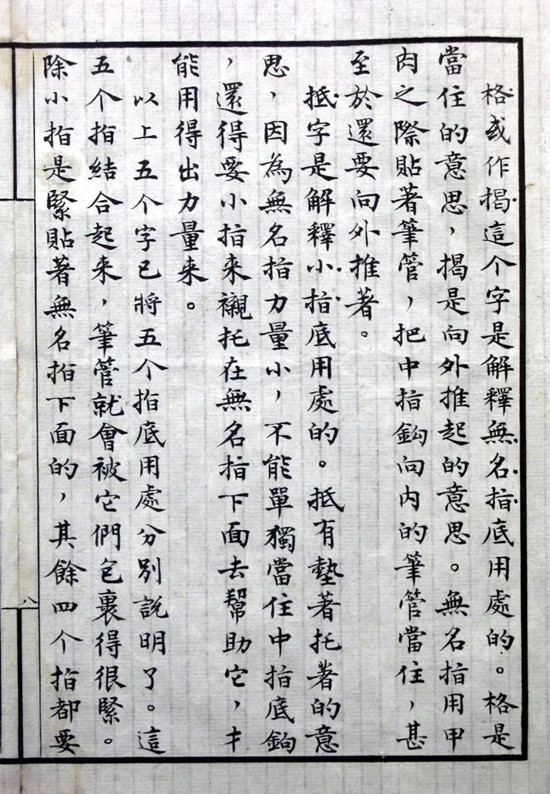 格或作揭這个字是解釋無名指底用處的。格是
當住的意思，揭是向外推起的意思。無名指用甲
肉之際貼著筆管，把中指鈎向內的筆管當住，甚
至於還要向外推著。
抵字是解釋小指底用處的。抵有墊著托著的意
思，因為無名指力量小，不能單獨當住中指底鈎
，還得要小指来襯托在無名指下面去幫助它，才
能用得出力量来。
以上五个字已將五个指底用處分别說明了。這
五个指結合起来，筆管就會被它們包裹得很緊。
除小指是緊貼著無名指下面的，其餘四个指都要
八